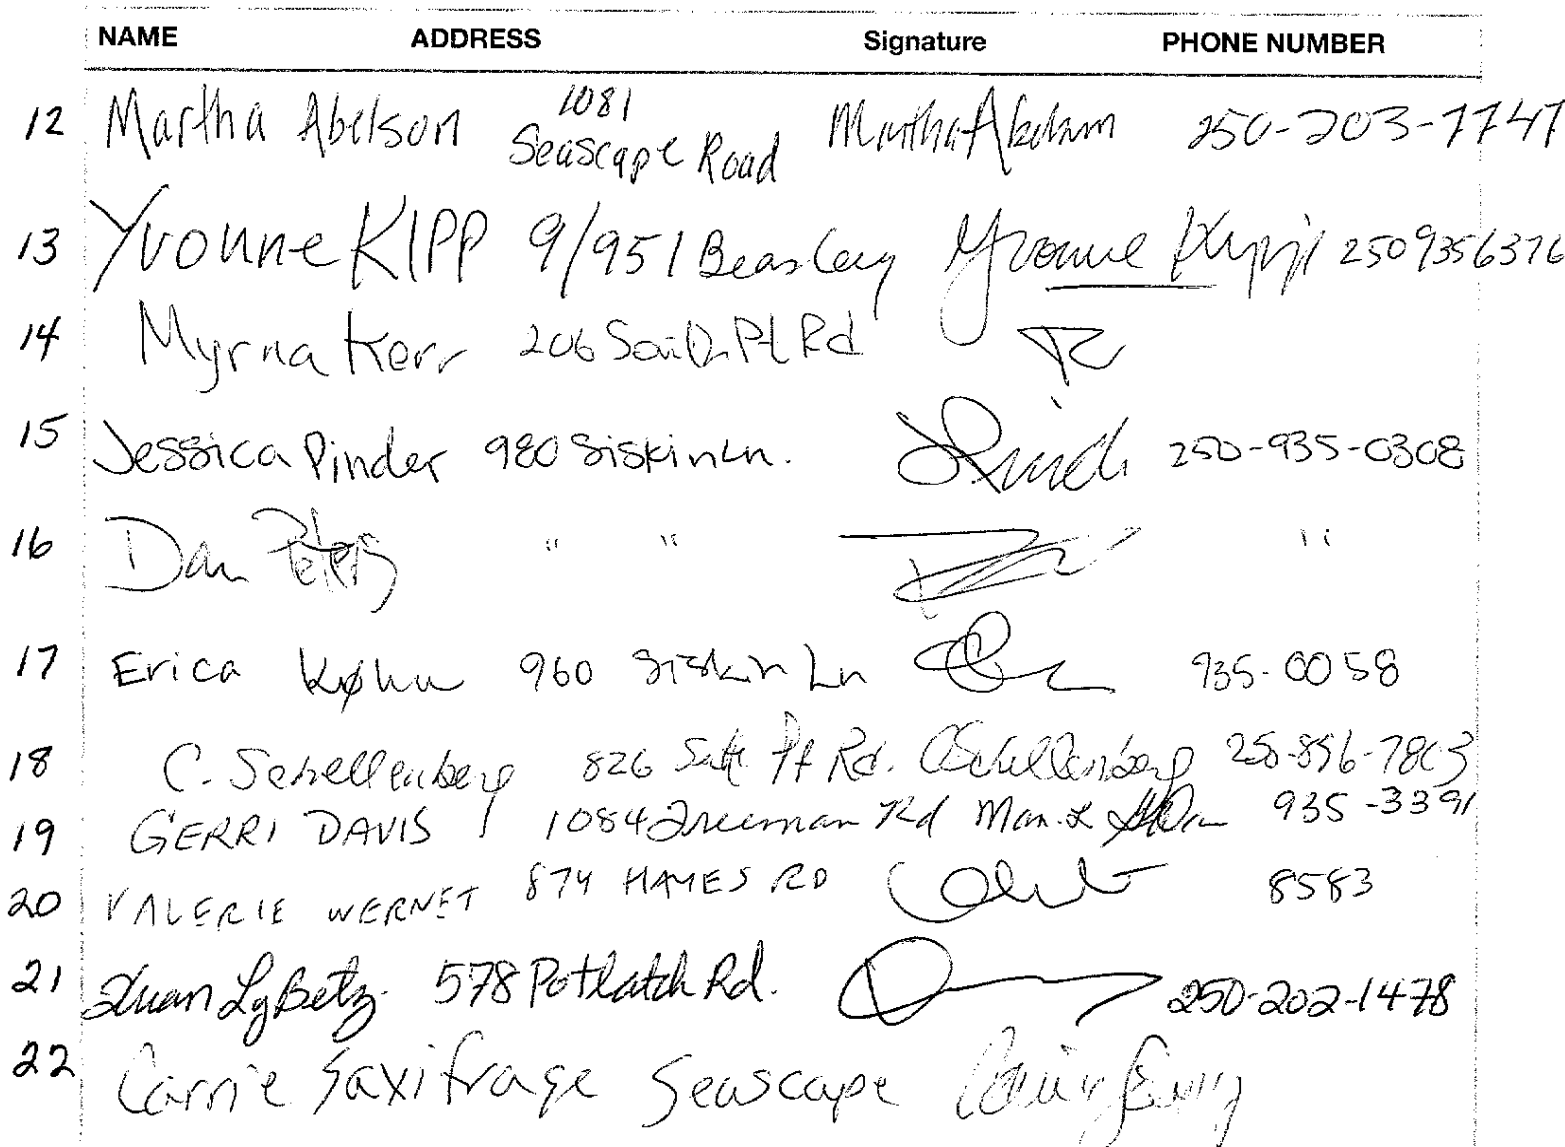 NAME ADDRESS Signature PHONE NUMBER
12 Martha Abelson 1081 Seascape Road Martha Abelson 250-203-7747
13 Yvonne KIPP 9/951 Beasley Yvonne Kipp 2509356376
14 Myrna Kerr 206 South Pt Rd
15 Jessica Pinder 980 Siskin Ln. 250-935-0308
16 Dan Peters " " "
17 Erica Køhn 960 Siskin Ln 935-0058
18 C. Schellenberg 826 Pt Rd. CSchellenberg 250-896-7803
19 GERRI DAVIS 1084 Freeman Rd Man. 935-3391
20 VALERIE WERNET 874 HAMES RD 8583
21 Xuan Ly Betz 578 Potlatch Rd. 250-202-1478
22 Carrie Saxifrage Seascape